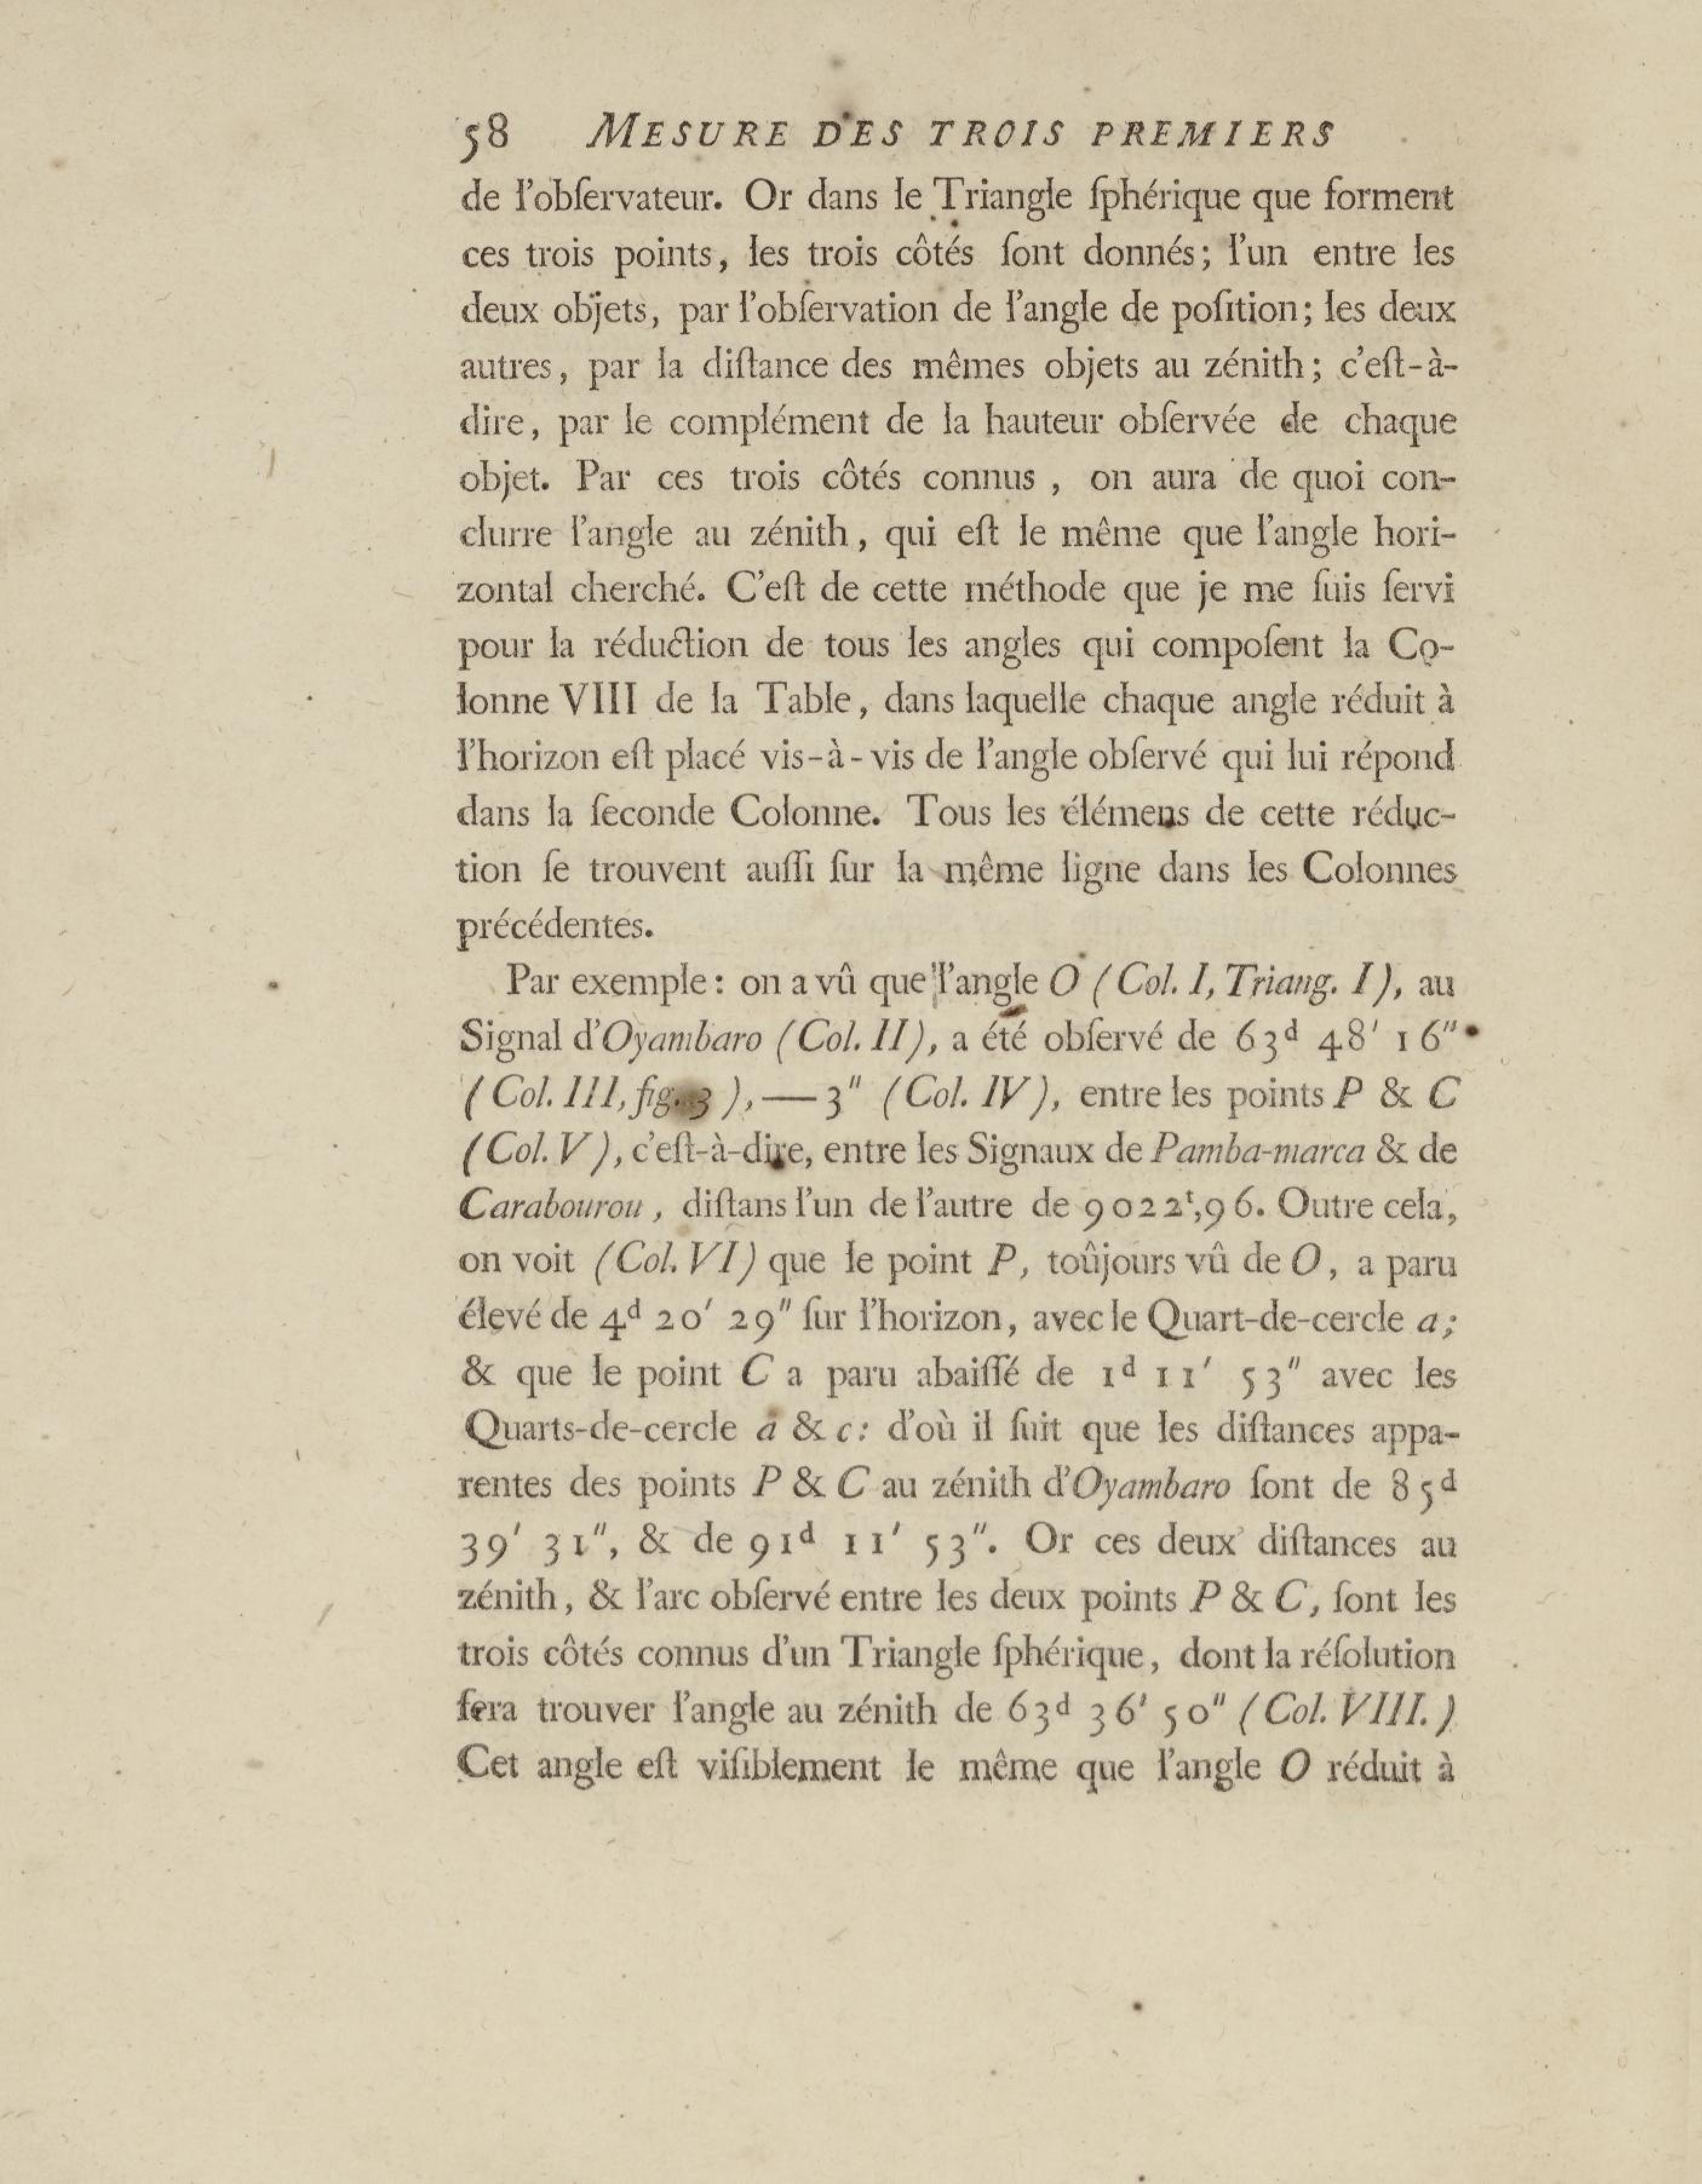 58 MESURE DES TROIS PREMIERS
de l'obſervateur. Or dans le Triangle ſphérique que forment
ces trois points, les trois côtés ſont donnés; l'un entre les
deux objets, par l'obſervation de l'angle de poſition; les deux
autres, par la diſtance des mêmes objets au zénith; c'eſt-à-
dire, par le complément de la hauteur obſervée de chaque
objet. Par ces trois côtés connus, on aura de quoi con-
clurre l'angle au zénith, qui eſt le même que l'angle hori-
zontal cherché. C'eſt de cette méthode que je me ſuis ſervi
pour la réduction de tous les angles qui compoſent la Co-
lonne VIII de la Table, dans laquelle chaque angle réduit à
l'horizon eſt placé vis-à-vis de l'angle obſervé qui lui répond
dans la ſeconde Colonne. Tous les élémens de cette réduc-
tion ſe trouvent auſſi ſur la même ligne dans les Colonnes
précédentes.
Par exemple: on a vû que l'angle O (Col. I, Triang. I), au
Signal d'Oyambaro (Col. II), a été obſervé de 63ᵈ 48′ 16″
(Col. III, fig. 3), — 3″ (Col. IV), entre les points P & C
(Col. V), c'eſt-à-dire, entre les Signaux de Pamba-marca & de
Carabourou, diſtans l'un de l'autre de 9022ᵗ,96. Outre cela,
on voit (Col. VI) que le point P, toûjours vû de O, a paru
élevé de 4ᵈ 20′ 29″ ſur l'horizon, avec le Quart-de-cercle a;
& que le point C a paru abaiſſé de 1ᵈ 11′ 53″ avec les
Quarts-de-cercle a & c: d'où il ſuit que les diſtances appa-
rentes des points P & C au zénith d'Oyambaro ſont de 85ᵈ
39′ 31″, & de 91ᵈ 11′ 53″. Or ces deux diſtances au
zénith, & l'arc obſervé entre les deux points P & C, ſont les
trois côtés connus d'un Triangle ſphérique, dont la réſolution
fera trouver l'angle au zénith de 63ᵈ 36′ 50″ (Col. VIII.)
Cet angle eſt viſiblement le même que l'angle O réduit à